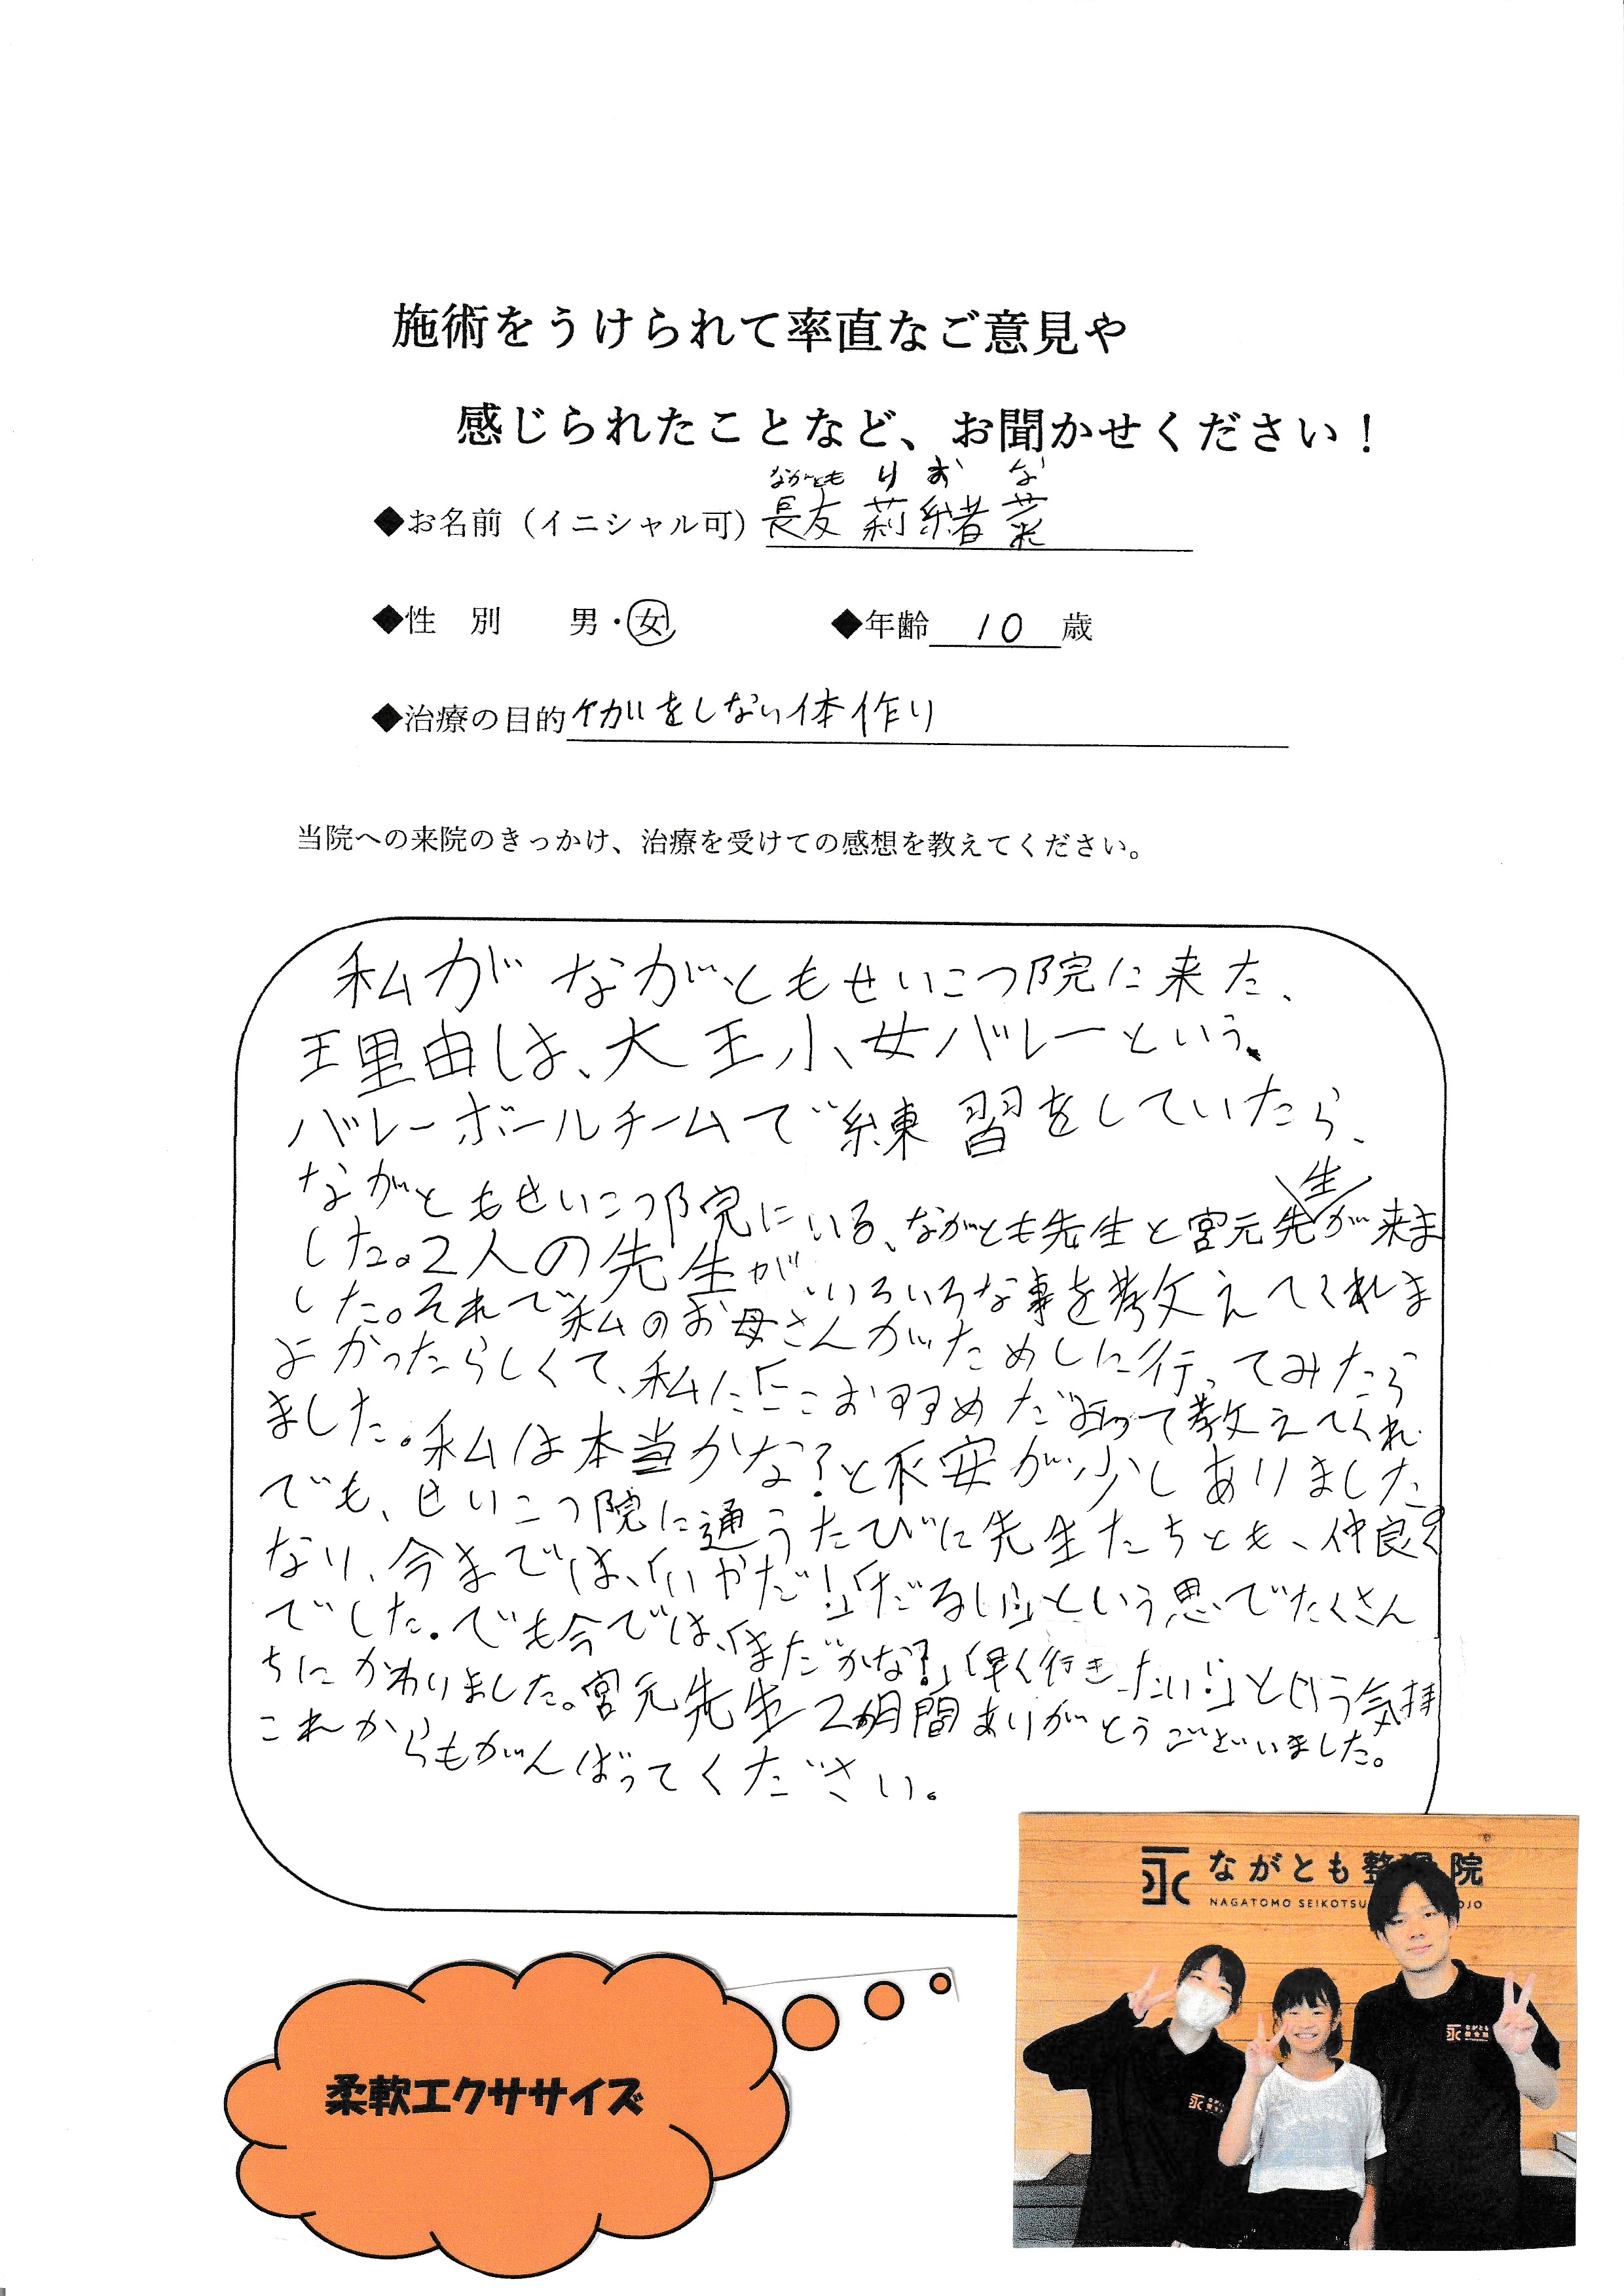 施術をうけられて率直なご意見や
感じられたことなど、お聞かせください！
ながとも りおな
◆お名前（イニシャル可）長友 莉緒菜
◆性 別 男・女 ◆年齢 10 歳
◆治療の目的 ケガをしない体作り
当院への来院のきっかけ、治療を受けての感想を教えてください。
私がながともせいこつ院に来た、
理由は、大王小女バレーという
バレーボールチームで練習をしていたら、
ながともせいこつ院にいる、ながとも先生と宮元先生が来ま
した。2人の先生が、いろいろな事を教えてくれま
した。それで私のお母さんがためしに行ってみたら
よかったらしくて、私に「ここおすすめだよ」って教えてくれ
ました。私は本当かな？と不安が少しありました。
でも、せいこつ院に通うたびに先生たちとも、仲良く
なり、今までは、「いやだ！」「だるい」という思でたくさん
でした。でも今では、「まだかな？」「早く行きたい！」という気持
ちにかわりました。宮元先生2カ月間ありがとうございました。
これからもがんばってください。
ながとも整 院
NAGATOMO SEIKOTSU
柔軟エクササイズ